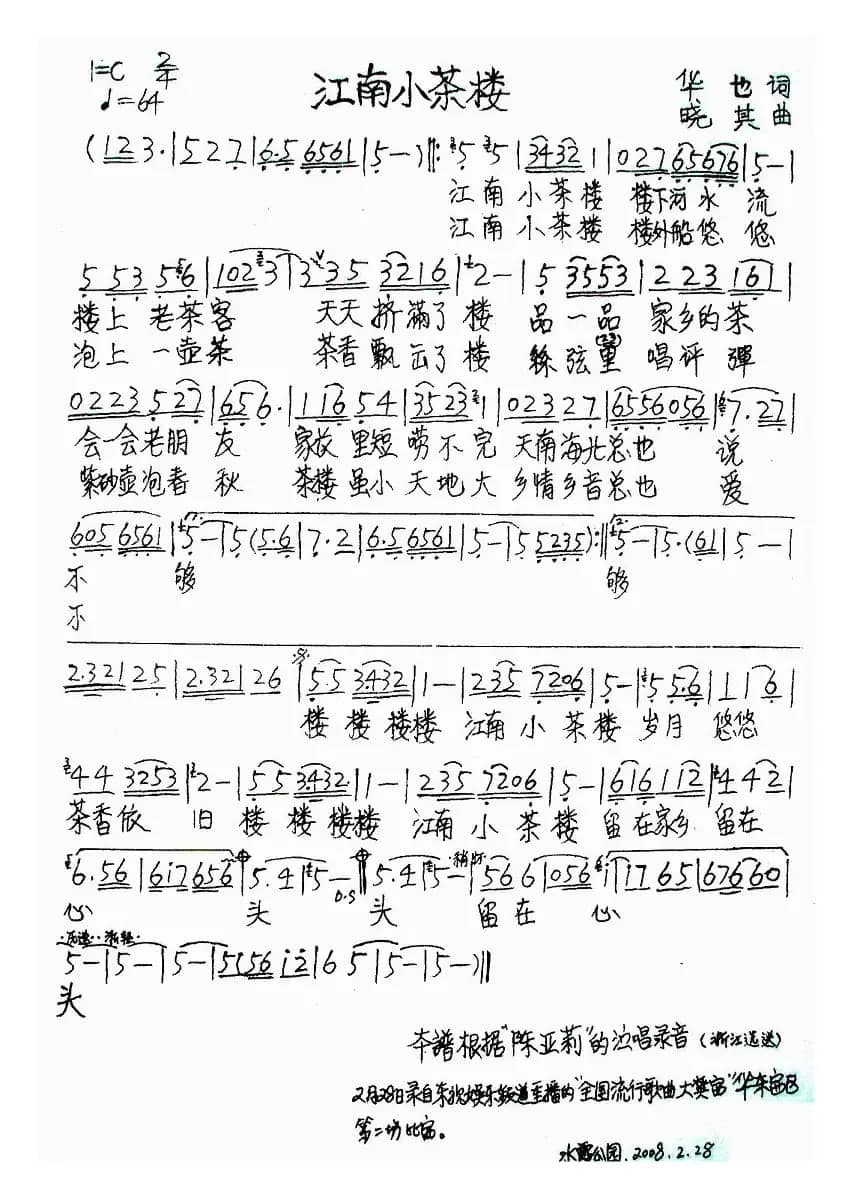 1=C 2/4 江南小茶楼 华也词
♩=64 晓其曲
(123·|527|6·5 6561|5—)‖:55|3432 1|027 65676|5—|
江南小茶楼 楼下河水流
江南小茶楼 楼外船悠悠
553 56|1023|335 3216|2—|5 3553|223 16|
楼上老茶客 天天挤满了楼 品一品家乡的茶
泡上一壶茶 茶香飘出了楼 丝弦里唱评弹
0223 527|656·|116 54|3523 1|023 27|6556 056|7·27|
会一会老朋友 家长里短唠不完 天南海北总也说
紫砂壶泡春秋 茶楼虽小天地大 乡情乡音总也爱
605 6561|5—|5(5·6|7·2|6·5 6561|5—|5 5235):‖5—|5·(61|5—|
不够 够
不
2·321 25|2·321 26|5·5 3432|1—|235 7206|5—|55·6|116|
楼楼楼楼 江南小茶楼 岁月悠悠
44 3253|2—|55 3432|1—|235 7206|5—|616 112|442|
茶香依旧 楼楼楼楼 江南小茶楼 留在家乡 留在
6·56|617656|5·4|5—|5·4|5—|566|056|i|17 65|67660|
D.S 稍慢
心头 头 留在心
5—|5—|5—|5(56 i2|65|5—|5—)‖
头
本谱根据"陈亚莉"的演唱录音(浙江选送)
2月28日录自东视娱乐频道直播的"全国流行歌曲大奖赛"华东赛区
第二场比赛。
水霞公园.2008.2.28